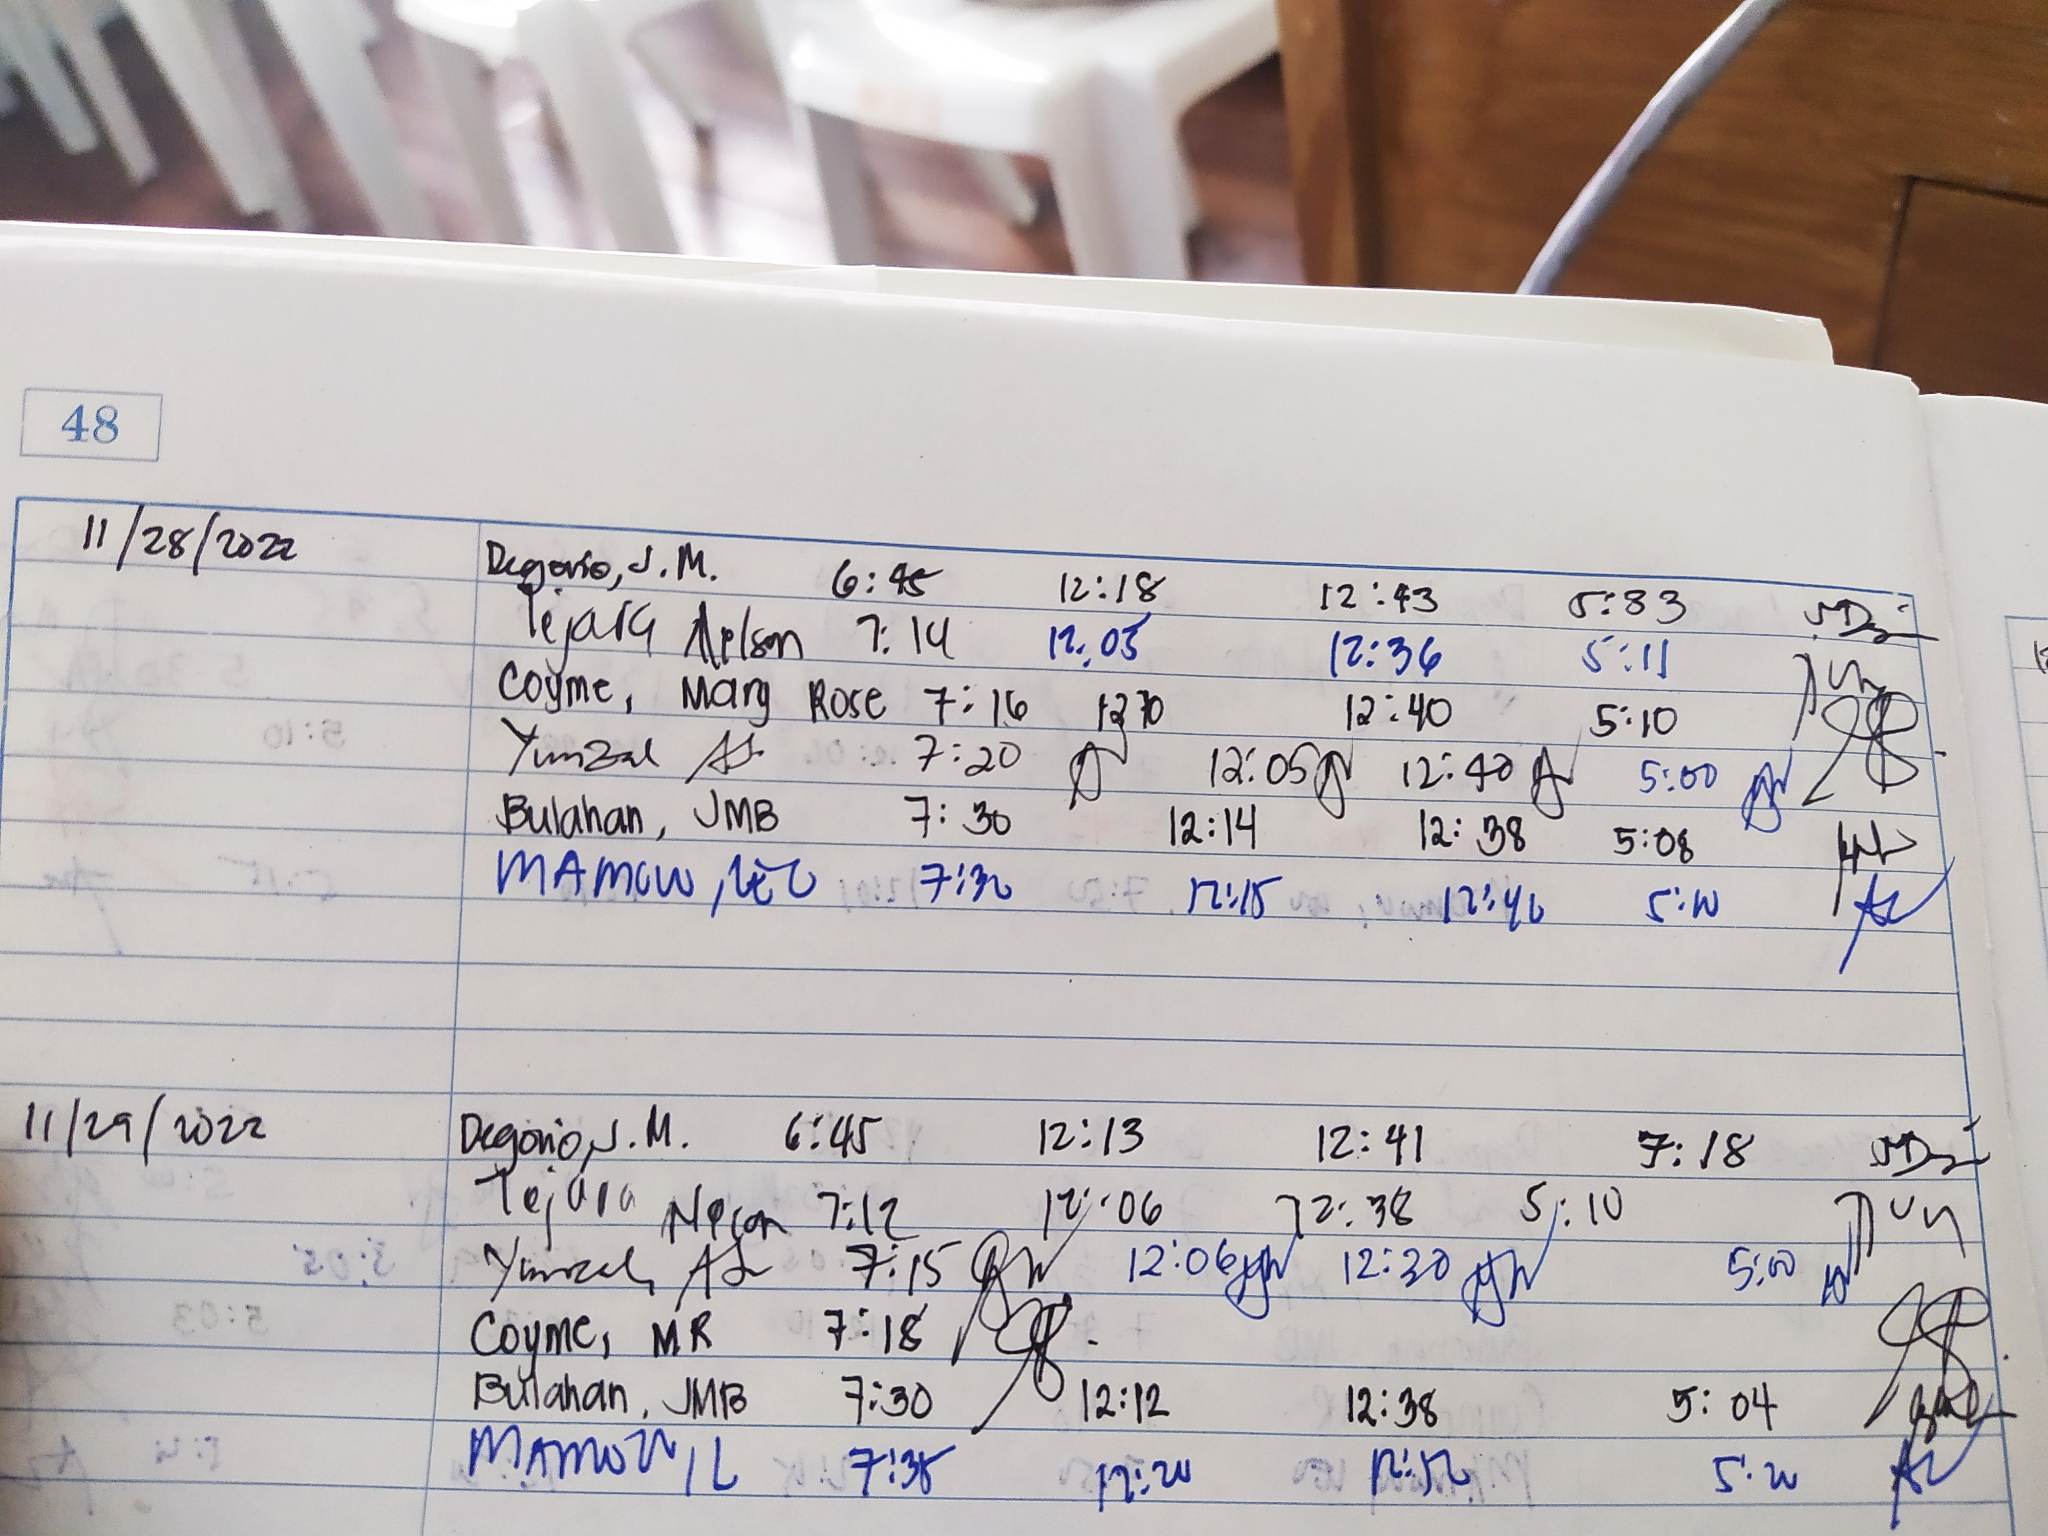 48
11/28/2022 Degorio, J.M. 6:45 12:18 12:43 5:33
Tejara Nelson 7:14 12:05 12:36 5:11
Coyme, Mary Rose 7:16 12:40 5:10
Yunzal AJ 7:20 12:05 12:40 5:00
Bulahan, JMB 7:30 12:14 12:38 5:08
7:30 12:15 12:40 5:10
11/29/2022 Degorio, J.M. 6:45 12:13 12:41 7:18
Tejara Nelson 7:12 12:06 12:38 5:10
Yunzal, AJ 7:15 12:06 12:30 5:00
Coyme, MR 7:18
Bulahan, JMB 7:30 12:12 12:38 5:04
7:35 12:20 12:52 5:20